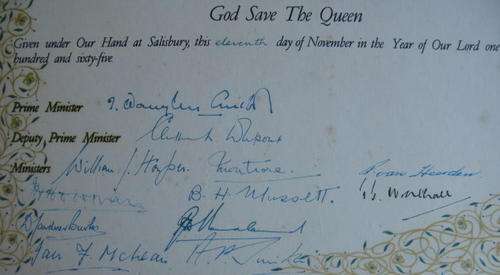 God Save The Queen
Given under Our Hand at Salisbury, this eleventh day of November in the Year of Our Lord one
hundred and sixty-five
Prime Minister I. Douglas Smith
Deputy Prime Minister Clifford Dupont
Ministers William J. Harper Montrose P. van Heerden
B. H. Mussett.
Ian F. McLean